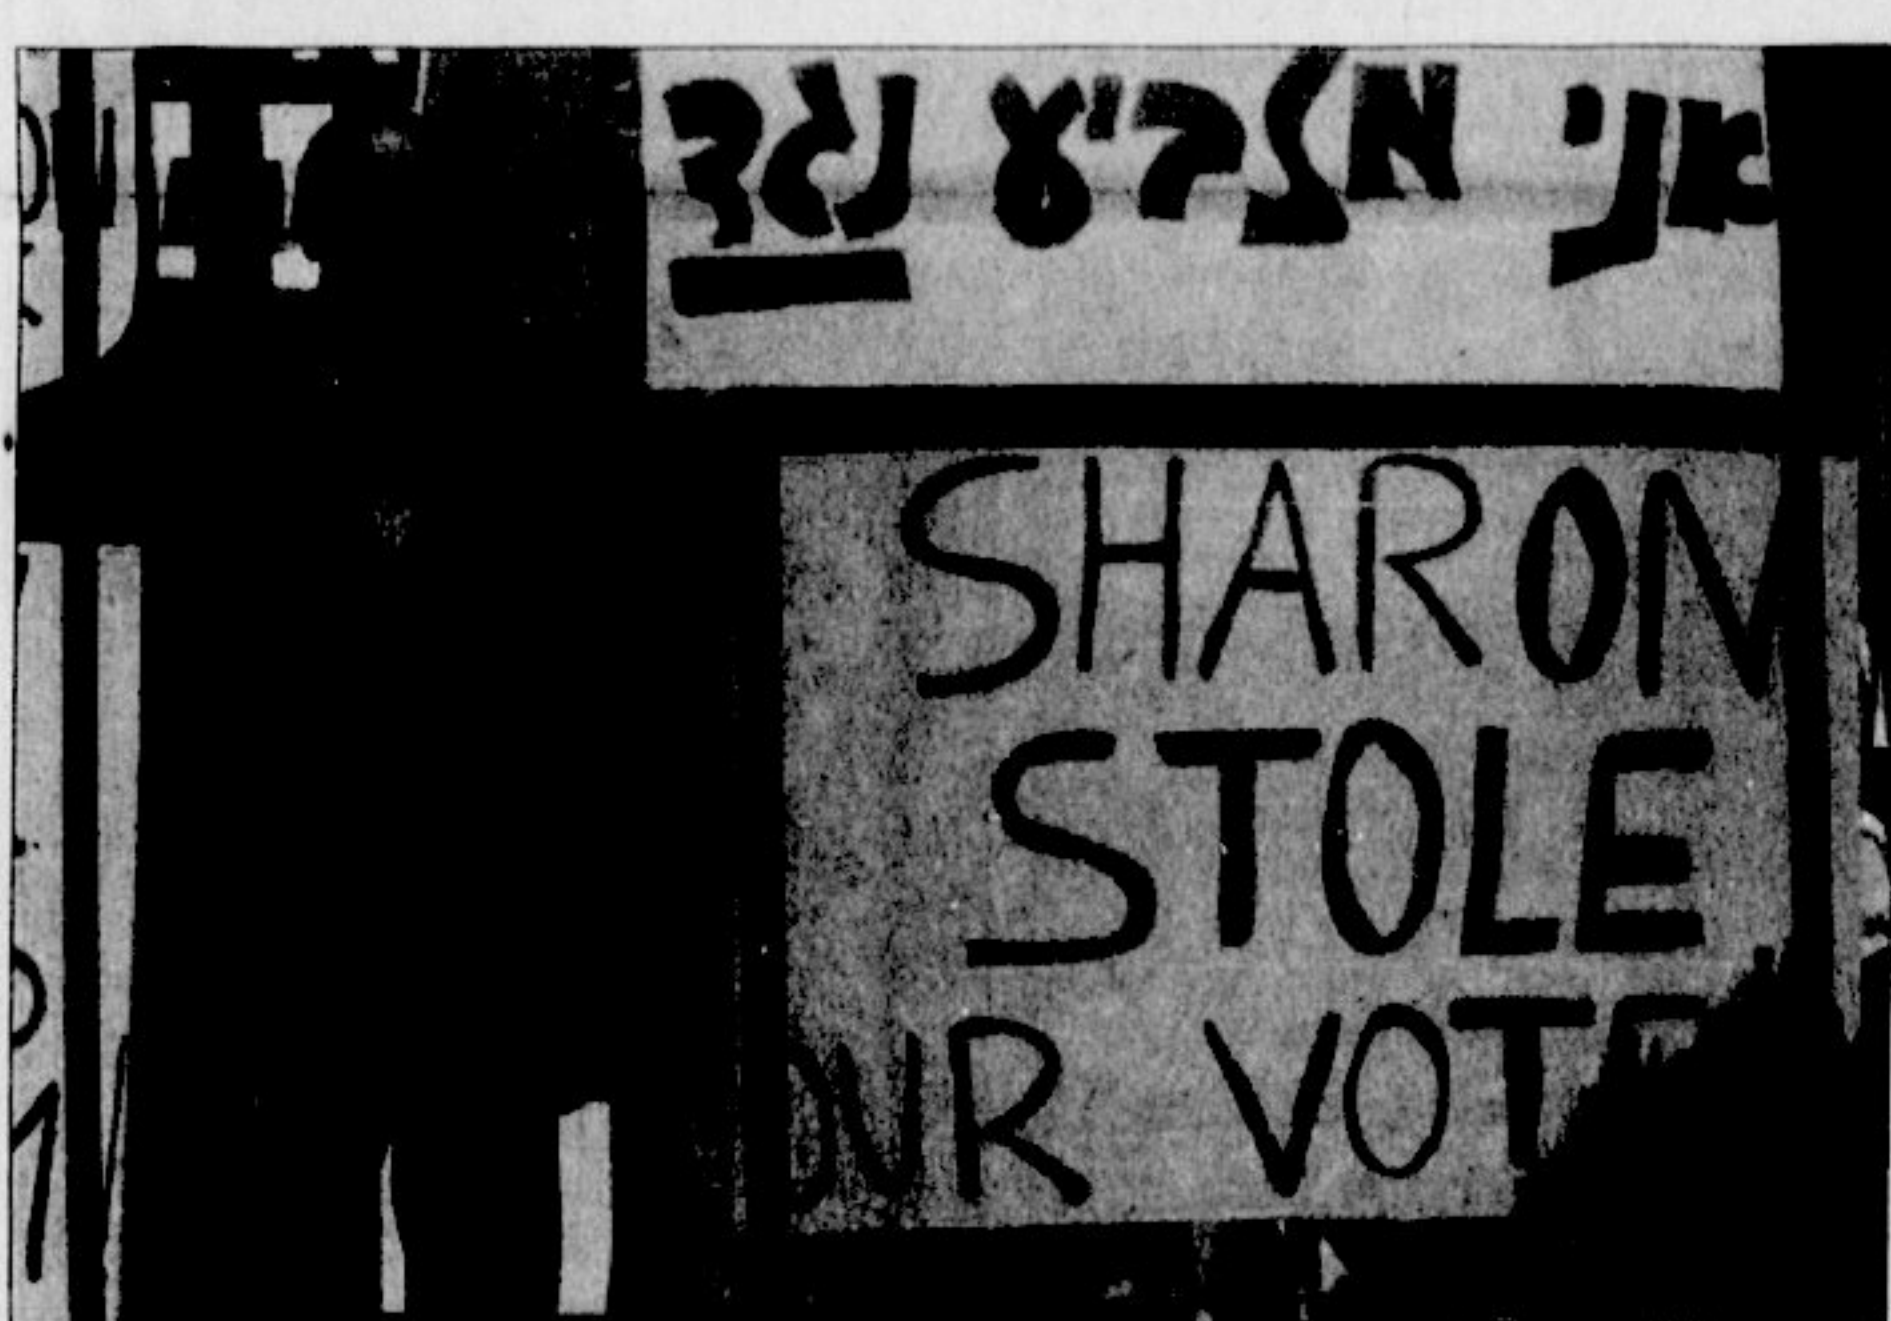 אני מצביע נגד
SHARON
STOLE
OUR VOTE